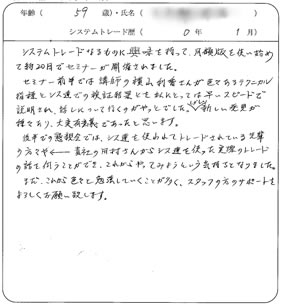 年齢（ 59 歳）・氏名（
システムトレード歴（ 0 年 1 月）
システムトレードなるものに興味を持って、月額版を使い始め
て約20日でセミナーが開催されました。
セミナー前半では講師の横山利香さんが色々なテクニカル
指標とシス達での検証結果ともほんとっては早いスピードで
説明され、話しについて行くのがやっとでした。しかし、新しい発見が
種々あり、大変有意義であったと思います。
後半での懇親会では、シス達を使われてトレードされている先輩
の方々や 貴社の川村さんからシス達を使った実際のトレード
の話を伺うことができ、これからやってみようという気持ちとなりました。
まだ、これから色々と勉強していくことが多く、スタッフの方のサポートを
よろしくお願い致します。